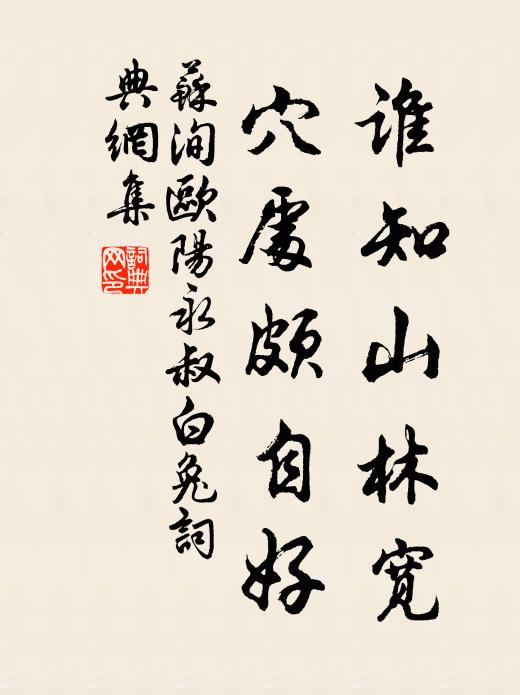 誰知山林寬
穴處頗自好
蘇洵歐陽永叔白兔詞
典網集
詞典
网印